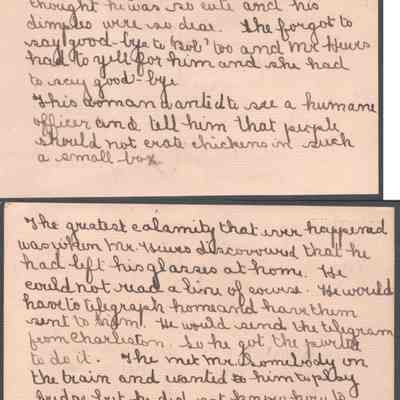 thought he was so cute and his
dimples were so dear. She forgot to
say good-bye to 'Bob' too and Mr. Hewes
had to yell for him and she had
to say good-bye
This woman wanted to see a humane
officer and tell him that people
should not crate chickens in such
a small box
The greatest calamity that ever happened
was when Mr. Hewes discovoured that he
had left his glasses at home. He
could not read a line of course. He would
have to telegraph home and have them
sent to him. He would send the telegram
from Charleston. So he got the porter
to do it. The met Mr. Somebody on
the train and wanted to him to play
bridge but he did not know how to